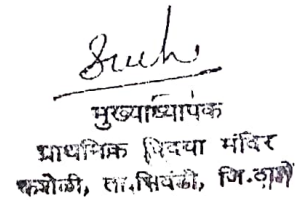 मुख्याध्यापक
प्राथमिक विद्या मंदिर
कशेळी, ता.भिवंडी, जि.ठाणे